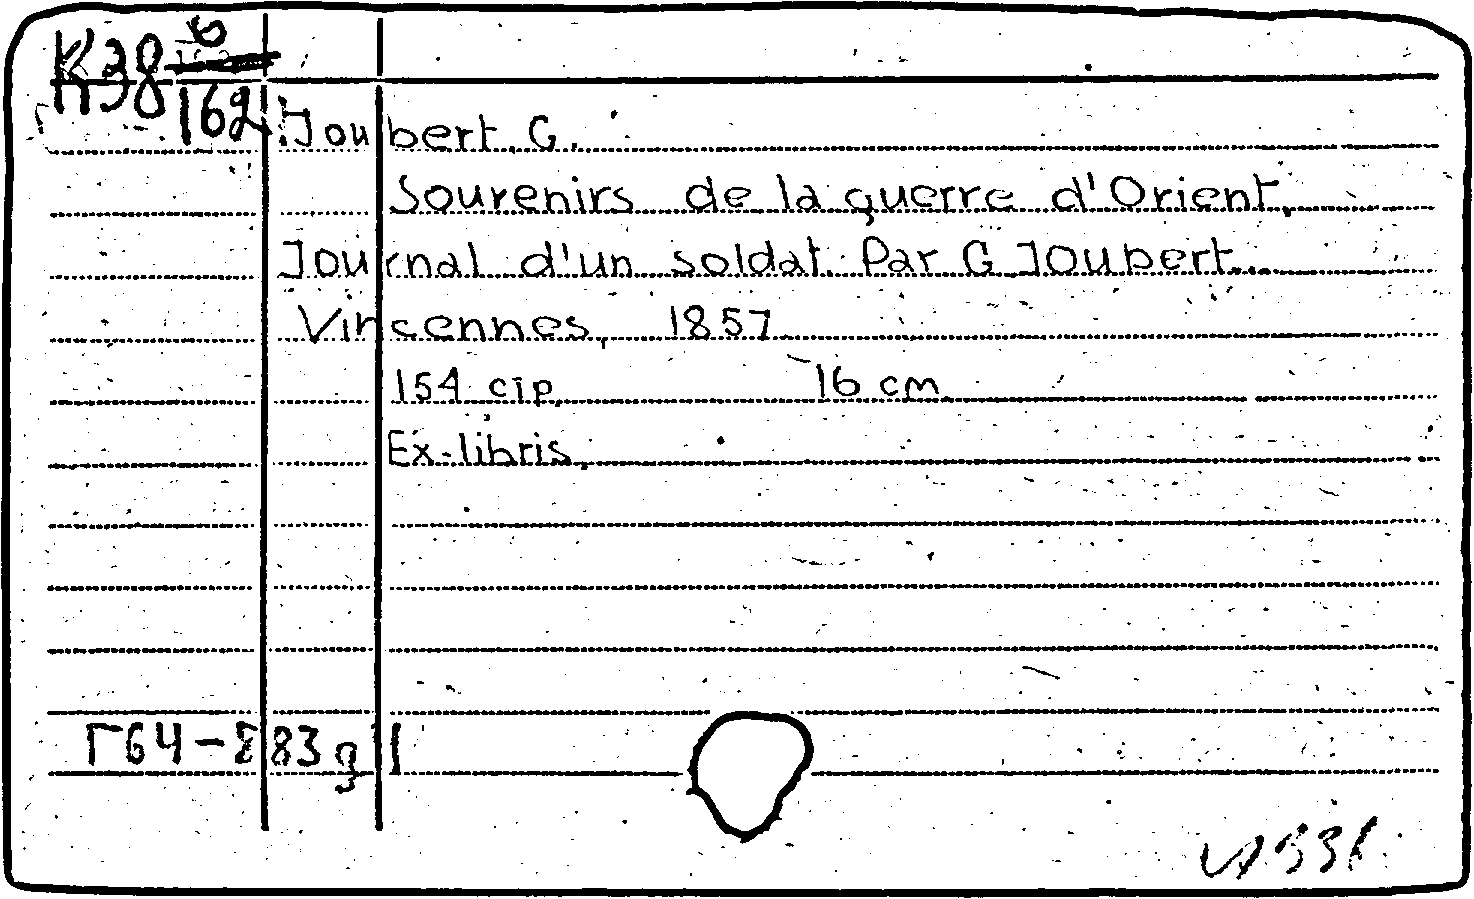 K38 6
162
Joubert, G.
Souvenirs de la guerre d'Orient.
Journal d'un soldat. Par G. Joubert...
Vincennes, 1857.
154 стр. 16 cm.
Ex-libris.
Г64-883 g 1